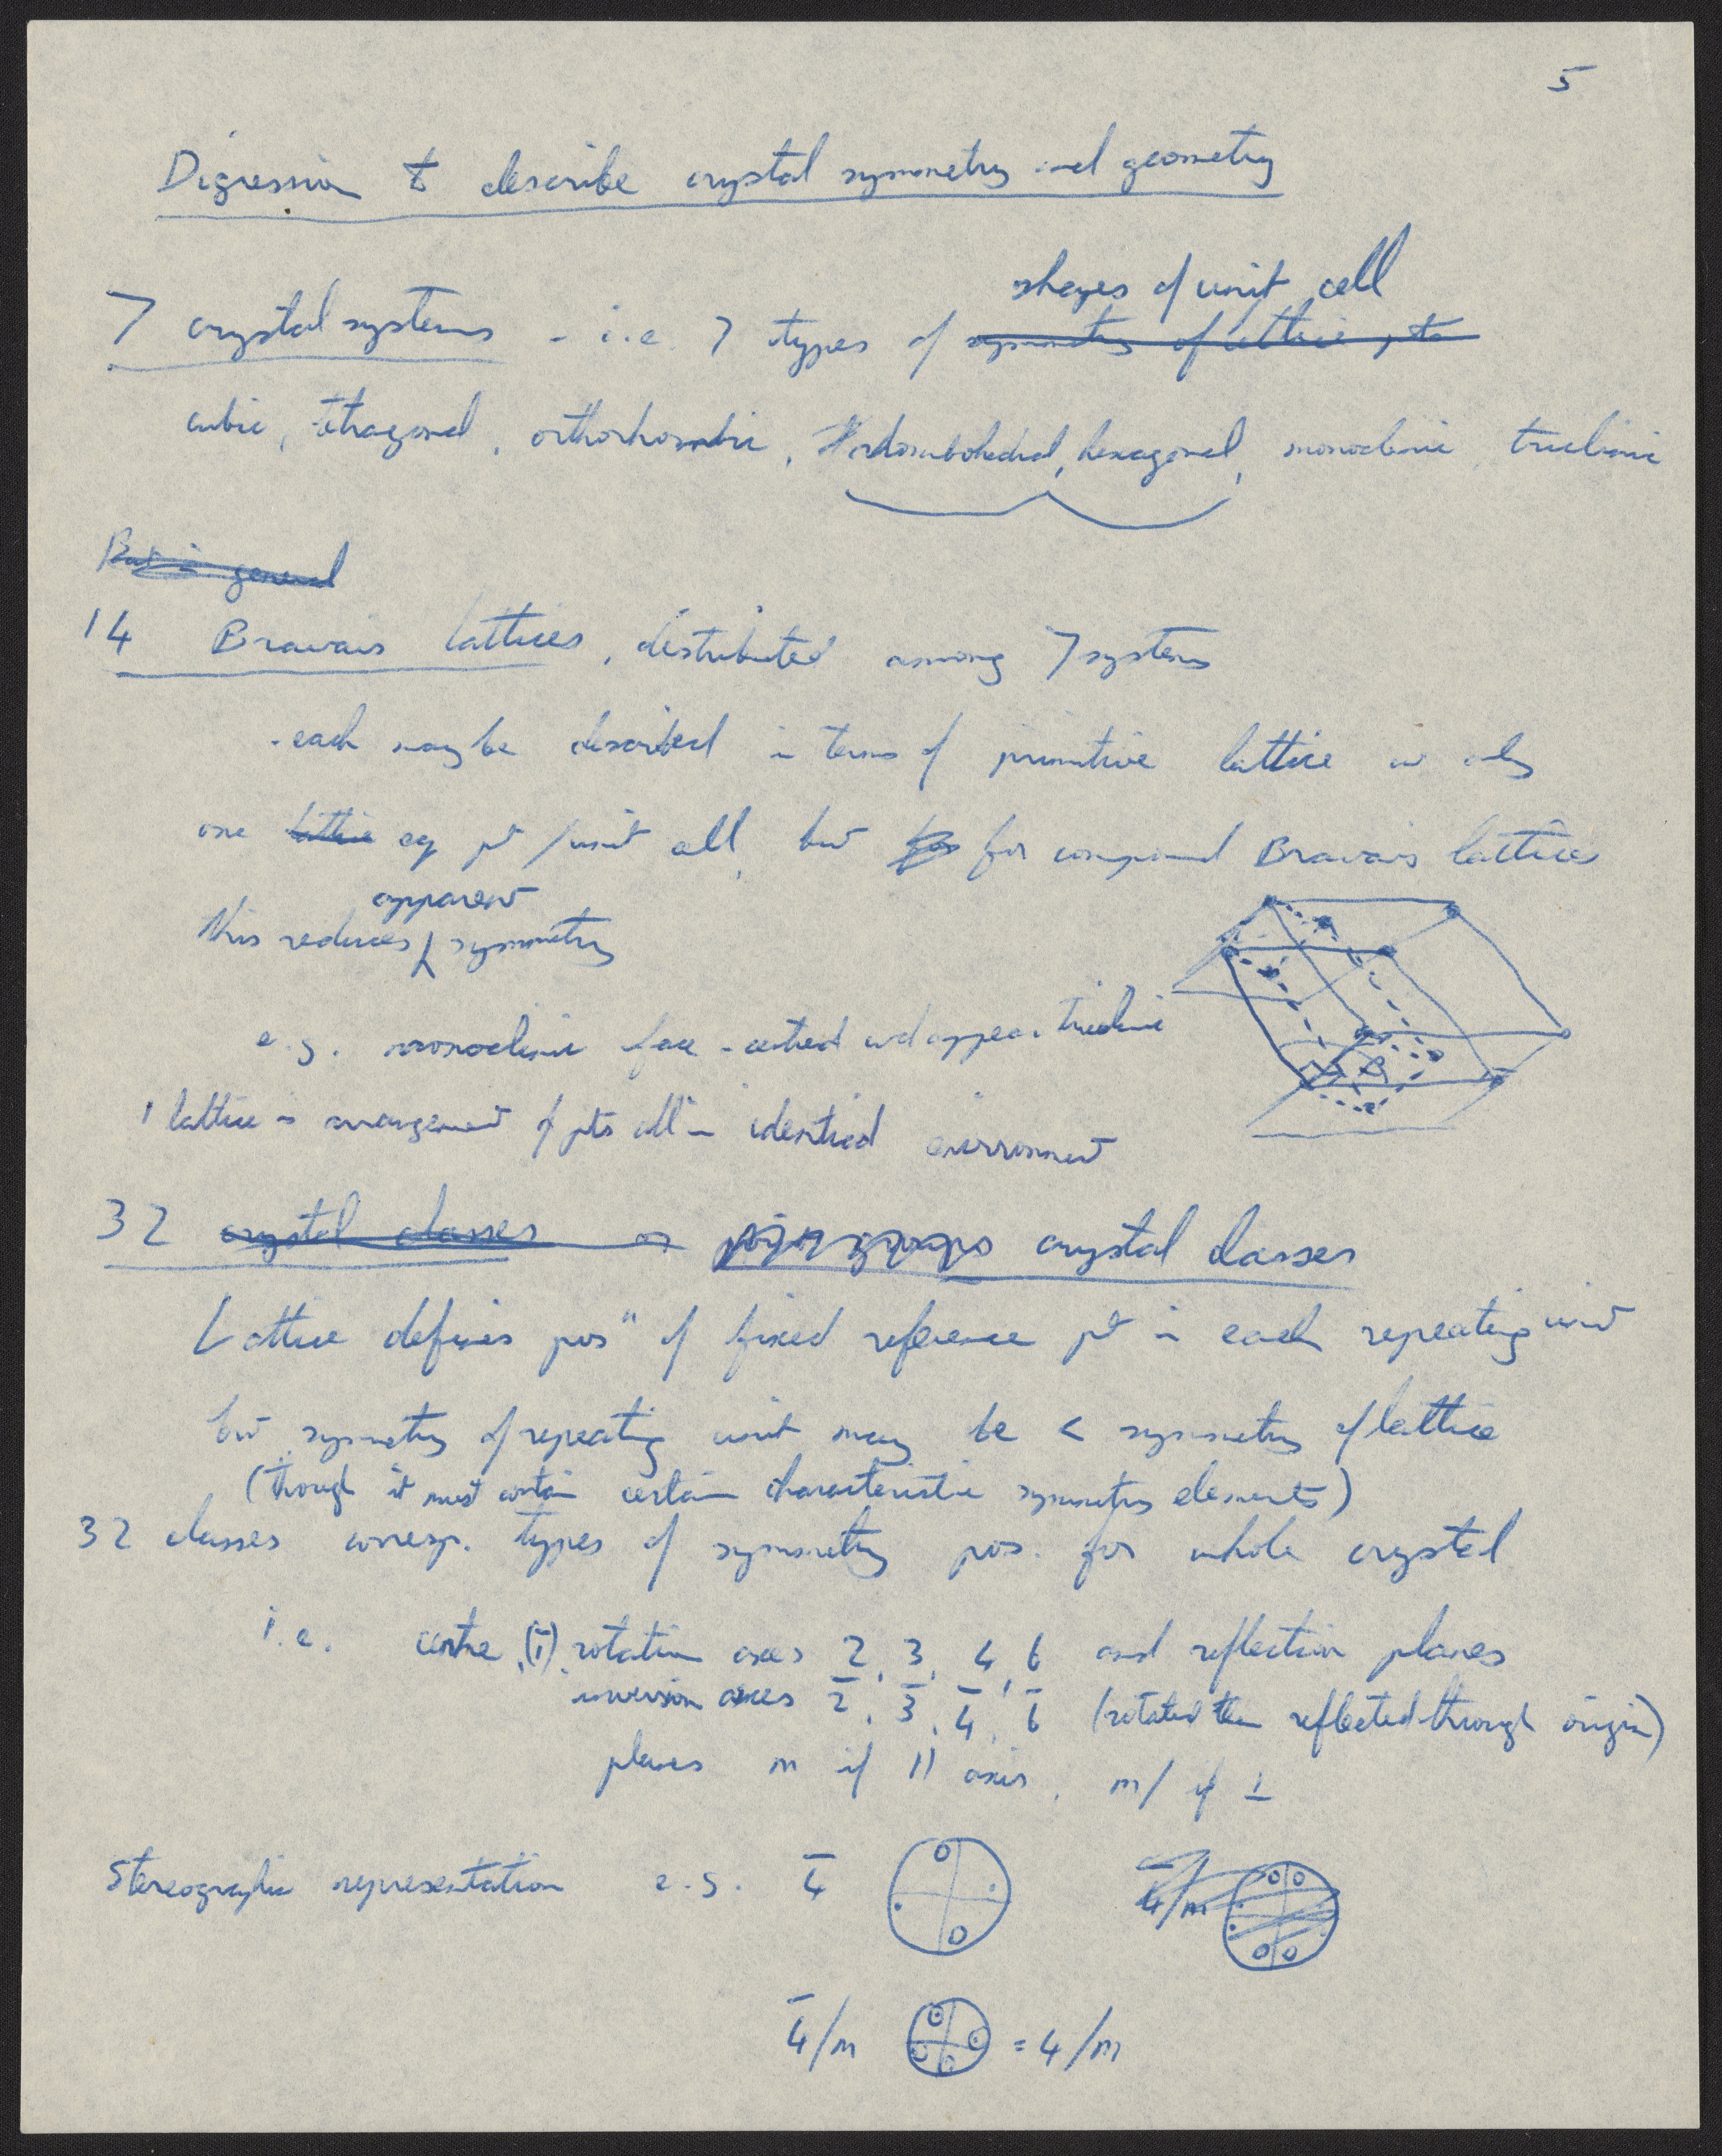 5
Digression to describe crystal symmetry and geometry
shapes of unit cell
7 crystal systems - i.e. 7 types of symmetry of lattice, to
cubic, tetragonal, orthorhombic, rhombohedral, hexagonal, monoclinic, triclinic
But in general
14 Bravais lattices, distributed among 7 systems
- each may be described in terms of primitive lattice w only
one lattice eq pt / unit cell, but for for compound Bravais lattices
apparent
this reduces symmetry
e.g. monoclinic face-centred wd appear triclinic
lattice = arrangement of pts all in identical environment
32 crystal classes or point groups crystal classes
Lattice defines posⁿ of fixed reference pt in each repeating unit
but symmetry of repeating unit may be < symmetry of lattice
(though it must contain certain characteristic symmetry elements)
32 classes corresp. types of symmetry pos. for whole crystal
i.e. centre (1̄), rotation axes 2, 3, 4, 6 and reflection planes
inversion axes 2̄, 3̄, 4̄, 6̄ (rotated then reflected through origin)
planes m if || axis, m/ if ⊥
Stereographic representation e.g. 4̄ 4̄/m
4̄/m = 4/m